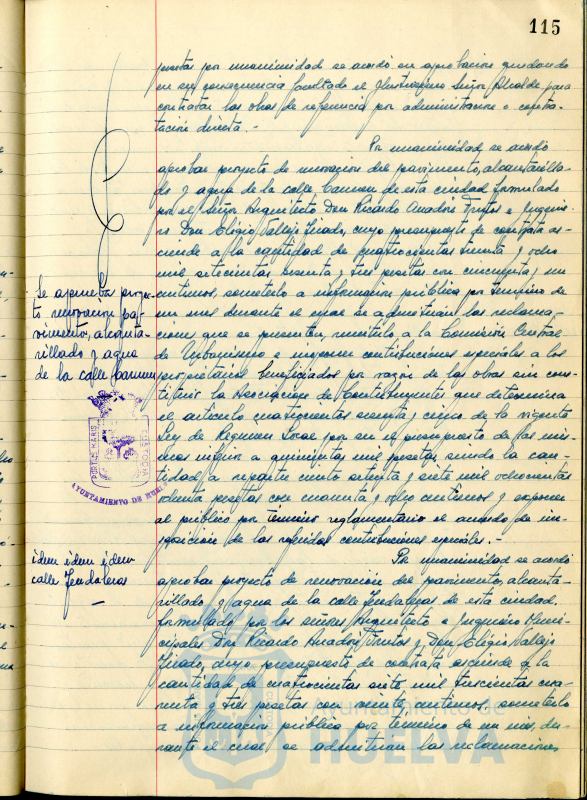 115
puestas por unanimidad se acordó su aprobacion quedando
en su consecuencia facultado el Ilustrisimo Señor Alcalde para
contratar las obras de referencia por administracion o contra-
tación directa.-
Por unanimidad se acordó
aprobar proyecto de renovacion del pavimento, alcantarilla-
do y agua de la calle Carmen de esta ciudad formulado
por el Señor Arquitecto Don Ricardo Anadón Frutos e Ingenie-
ro Don Eligio Vallejo Tirado, cuyo presupuesto de contrata as-
ciende a la cantidad de cuatrocientas treinta y ocho
mil setecientas sesenta y tres pesetas con cincuenta y un
centimos, someterlo a informacion pública por termino de
un mes durante el cual se admitirán las reclama-
ciones que se presenten, remitirlo a la Comisión Central
de Urbanismo e imponer contribuciones especiales a los
propietarios beneficiados por razón de las obras sin cons-
tituir la Asociacion de Contribuyentes que determina
el articulo cuatrocientos sesenta y cinco de la vigente
Ley de Regimen Local por ser el presupuesto de las mis-
mas inferior a quinientas mil pesetas, siendo la can-
tidad a repartir ciento setenta y siete mil ochocientas
ochenta pesetas con cuarenta y ocho centimos y exponer
al público por término reglamentario el acuerdo de im-
posición de las referidas contribuciones especiales.-
Por unanimidad se acordó
aprobar proyecto de renovación del pavimento, alcanta-
rillado y agua de la calle Tendaleras de esta ciudad.
formulado por los señores Arquitecto e Ingeniero Muni-
cipales Don Ricardo Anadón Frutos y Don Eligio Vallejo
Tirado, cuyo presupuesto de contrata asciende a la
cantidad de cuatrocientas siete mil trescientas cua-
renta y tres pesetas con veinte centimos, someterlo
a informacion pública por término de un mes, du-
rante el cual se admitiran las reclamaciones
Se aprueba proyec-
to renovacion pa-
vimento, alcanta-
rillado y agua
de la calle Carmen
PORTUS MARIS
CUSTODIA
AYUNTAMIENTO DE HUELVA
idem idem idem
calle Tendaleras
Ayuntamiento de
HUELVA